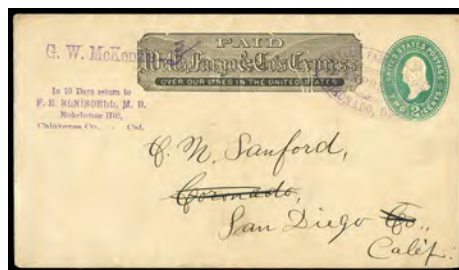 PAID
G. W. McKenzie
Wells, Fargo & Co's Express
OVER OUR LINES IN THE UNITED STATES
UNITED STATES POSTAGE
TWO 2 CENTS
In 10 Days return to
M. D.
Mokelumne Hill,
Calaveras Co. - Cal.
C. N. Sanford,
Coronado,
San Diego Co.,
Calif.